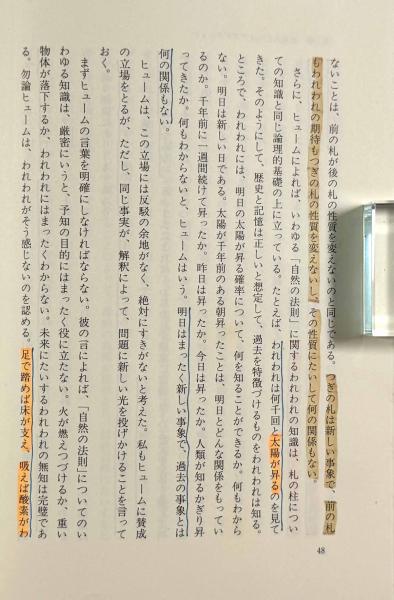 ないことは、前の札が後の札の性質を変えないのと同じである。つぎの札は新しい事象で、前の札
もわれわれの期待もつぎの札の性質を変えないし、その性質にたいして何の関係もない。
さらに、ヒュームによれば、いわゆる「自然の法則」に関するわれわれの知識は、札の柱につい
ての知識と同じ論理的基礎の上に立っている。たとえば、われわれは何千回と太陽が昇るのを見て
きた。そのようにして、歴史と記憶は正しいと想定して、過去を特徴づけるものをわれわれは知る。
ところで、われわれには、明日の太陽が昇る確率について、何を知ることができるか。何もわから
ない。明日は新しい日である。太陽が千年前のある朝昇ったことは、明日とどんな関係をもってい
るのか。千年前に一週間続けて昇ったか。昨日は昇ったか。今日は昇ったか。人類が知るかぎり昇
ってきたか。何もわからないと、ヒュームはいう。明日はまったく新しい事象で、過去の事象とは
何の関係もない。
ヒュームは、この立場には反駁の余地がなく、絶対にすきがないと考えた。私もヒュームに賛成
の立場をとるが、ただし、同じ事実が、解釈によって、問題に新しい光を投げかけることを言って
おく。
まずヒュームの言葉を明確にしなければならない。彼の言によれば、「自然の法則」についてのい
わゆる知識は、厳密にいうと、予知の目的にはまったく役に立たない。火が燃えつづけるか、重い
物体が落下するか、われわれにはまったくわからない。未来にたいするわれわれの無知は完璧であ
る。勿論ヒュームは、われわれがそう感じないのを認める。足で踏めば床が支え、吸えば酸素がわ
48